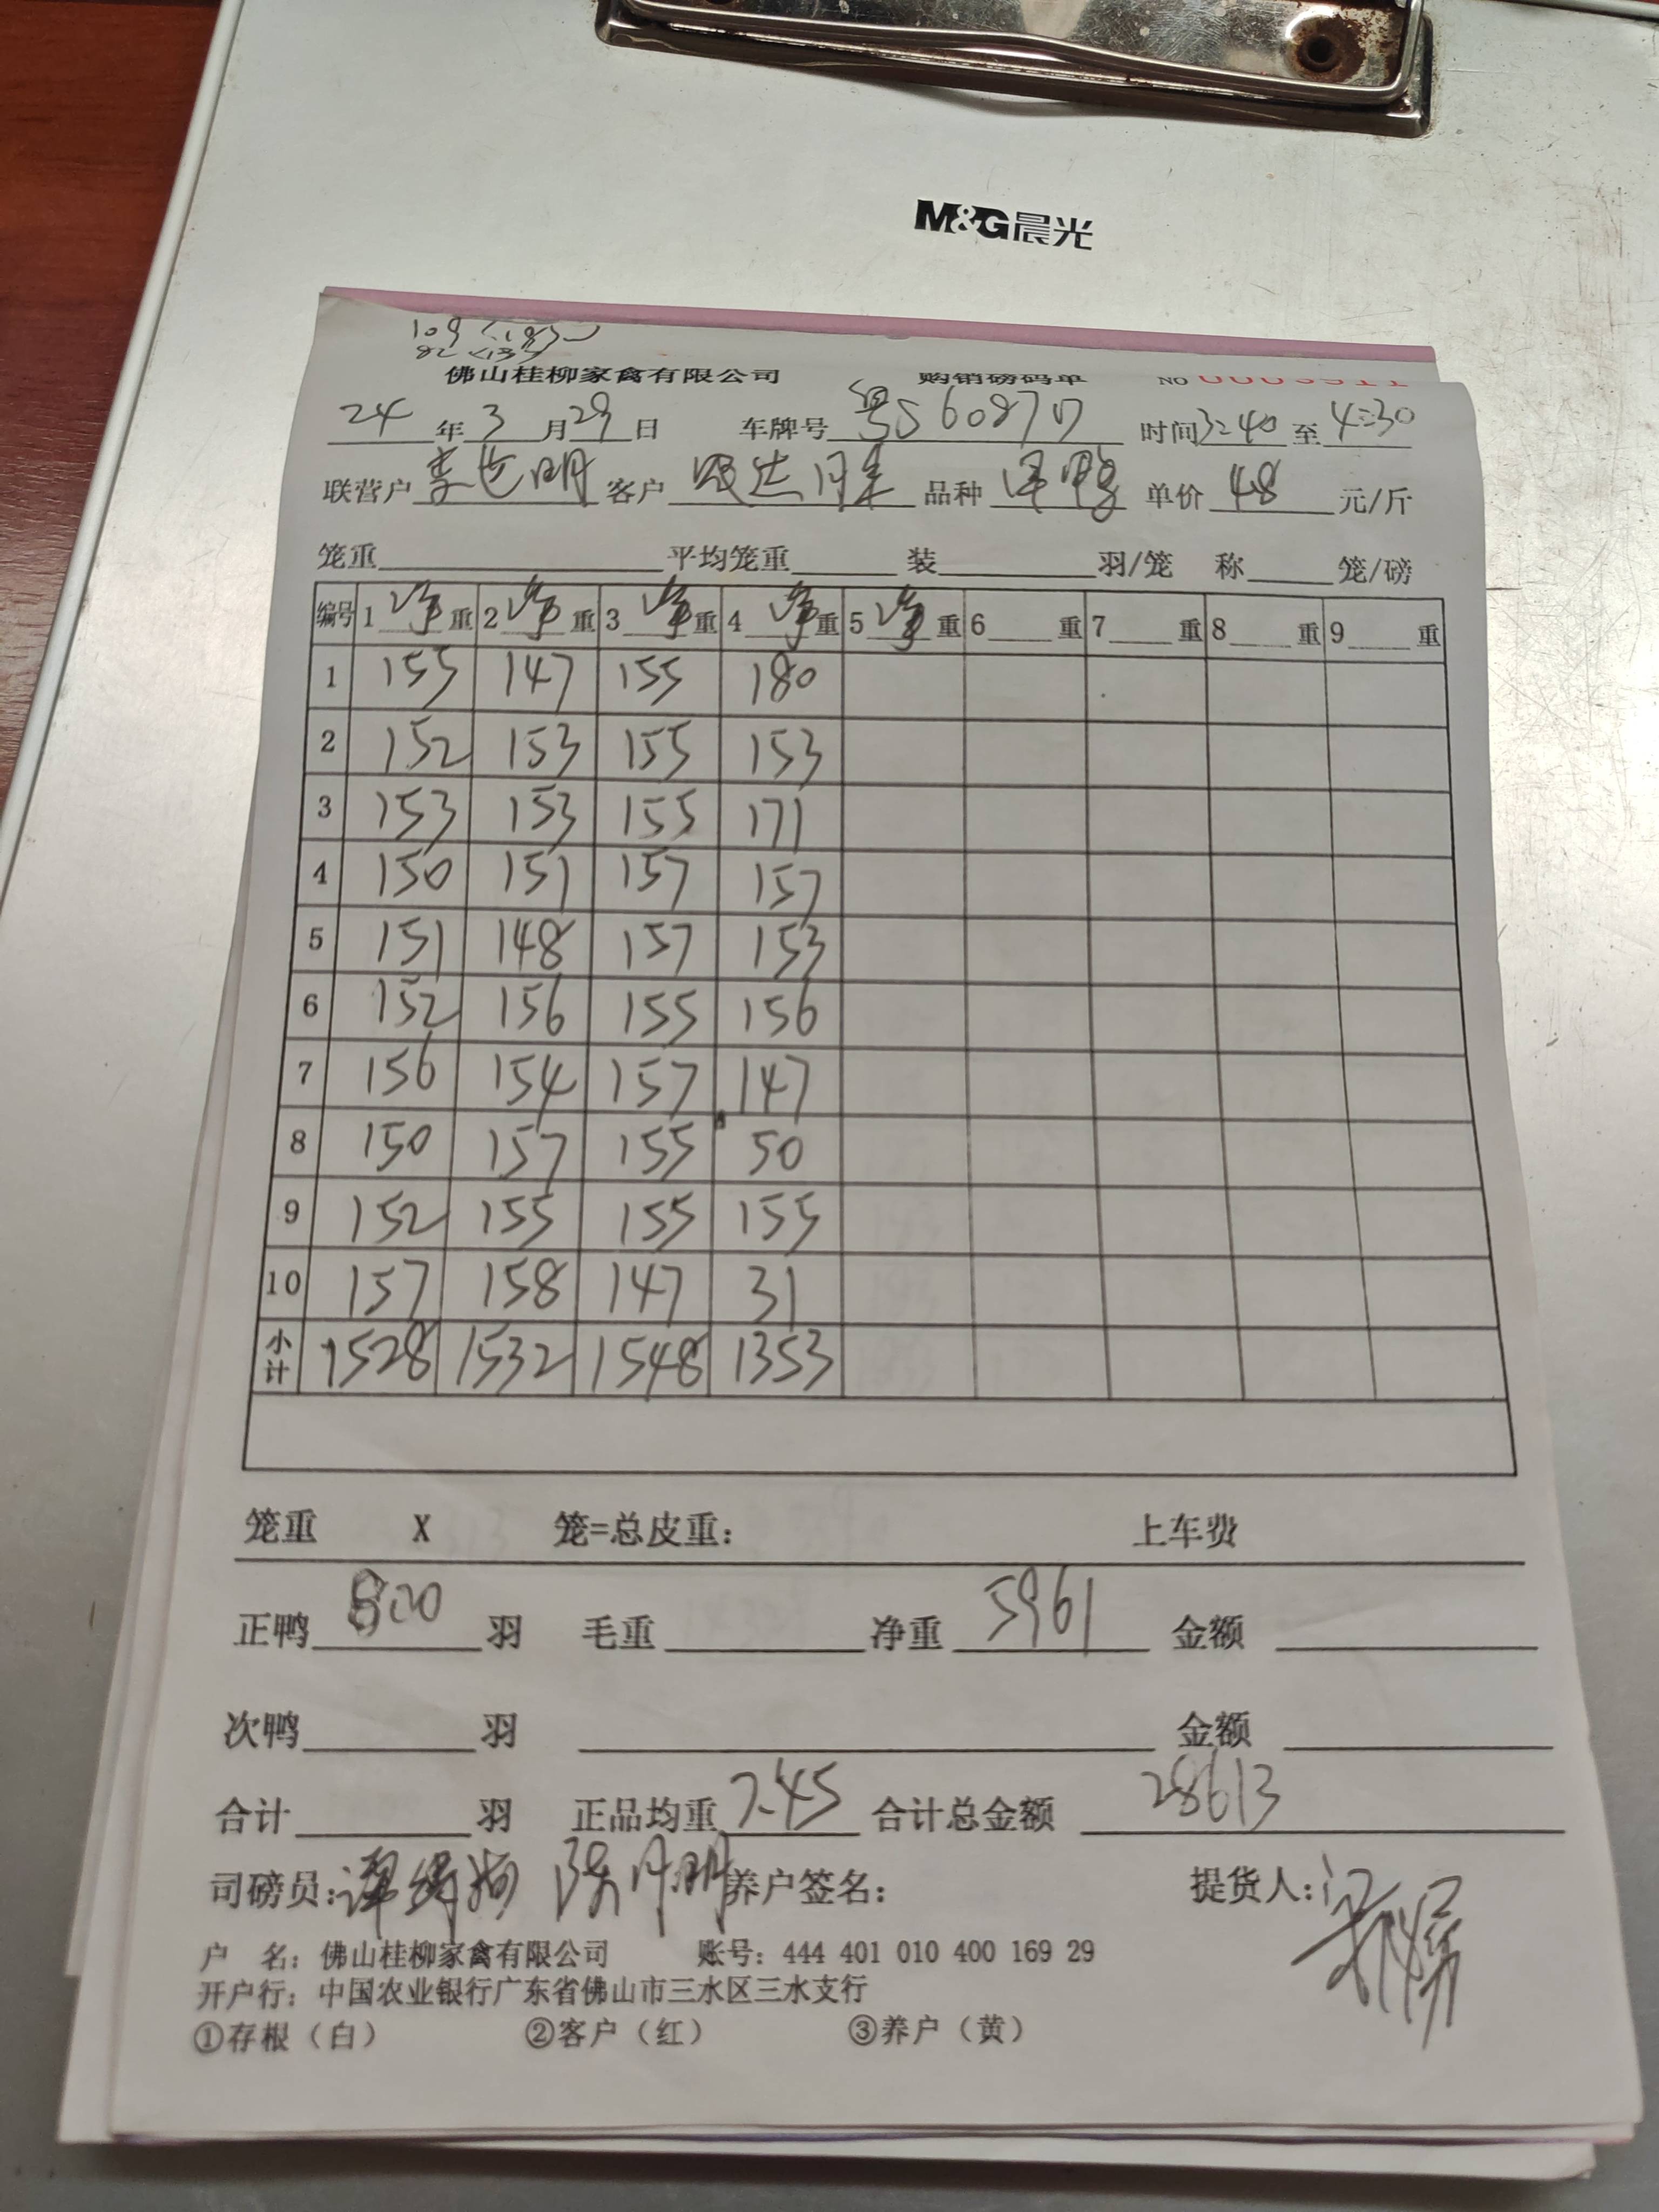 M&G晨光
佛山桂柳家禽有限公司 购销磅码单 NO
24年3月29日 车牌号粤S60870 时间3:40至4:30
联营户李 明 客户 品种 鸭 单价48元/斤
笼重 平均笼重 装 羽/笼 称 笼/磅
编号 1净重 2净重 3净重 4净重 5净重 6重 7重 8重 9重
1 155 147 155 180
2 152 153 155 153
3 153 153 155 171
4 150 151 157 157
5 151 148 157 153
6 152 156 155 156
7 156 154 157 147
8 150 157 155 50
9 152 155 155 155
10 157 158 147 31
小计 1528 1532 1548 1353
笼重 X 笼=总皮重: 上车费
正鸭800羽 毛重 净重5961 金额
次鸭 羽 金额
合计 羽 正品均重7.45 合计总金额28613
司磅员: 养户签名: 提货人:
户 名: 佛山桂柳家禽有限公司 账号: 444 401 010 400 169 29
开户行: 中国农业银行广东省佛山市三水区三水支行
①存根(白) ②客户(红) ③养户(黄)